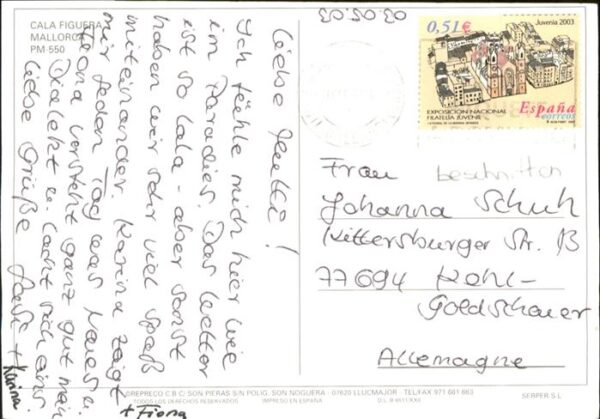 CALA FIGUERA
MALLORCA
PM-550
03.05.03
Liebe Mutti!
Ich fühle mich hier wie
im Paradies. Das Wetter
ist so lala - aber sonst
haben wir sehr viel Spaß
miteinander. Karina zeigt
mir jeden Tag was Neues.
Fiona versteht ganz gut mein
Dialekt u. lacht sich eins.
Liebe Grüße
+ Karina
+ Fiona
0,51€
Juvenia 2003
EXPOSICIÓN NACIONAL
FILATELIA JUVENIL
España
correos
Frau
beschnitten
Johanna Schuh
Kittersburger Str. 13
77694 Kehl-
Goldscheuer
Allemagne
CREPRECO C.B C/ SON PIERAS S/N POLIG, SON NOGUERA - 07620 LLUCMAJOR TEL/FAX 971 661 863
TODOS LOS DERECHOS RESERVADOS
IMPRESO EN ESPAÑA
SERPER.S.L